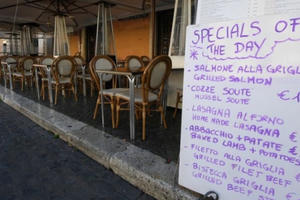 SPECIALS OF
THE DAY
SALMONE ALLA GRIGLIA
GRILLED SALMON
COZZE SOUTE
MUSSEL SOUTE
LASAGNA AL FORNO
HOME MADE LASAGNA
ABBACCHIO + PATATE
BAKED LAMB + POTATOES
FILETTO ALLA GRIGLIA
GRILLED FILET BEEF
BISTECCA GRIGLIA
GRILLED BEEF